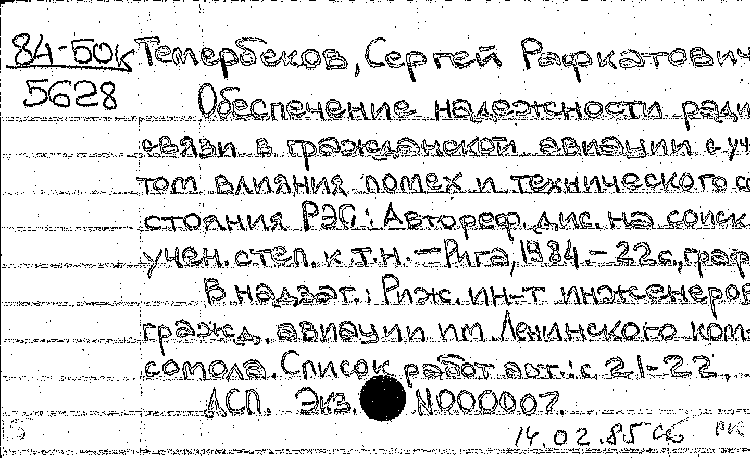 84-50к Темербеков, Сергей Рафкатович
5628
Обеспечение надежности ради
связи в гражданской авиации с уч
том влияния помех и технического со
стояния РЭС: Автореф. дис. на соиск
учен. степ. к.т.н. — Рига, 1984 — 22 с., граф
В надзаг.: Риж. ин-т инженеров
гражд. авиации им Ленинского ком-
сомола. Список работ авт.: с 21-22.
ДСП. Экз. N000007.
14.02.85